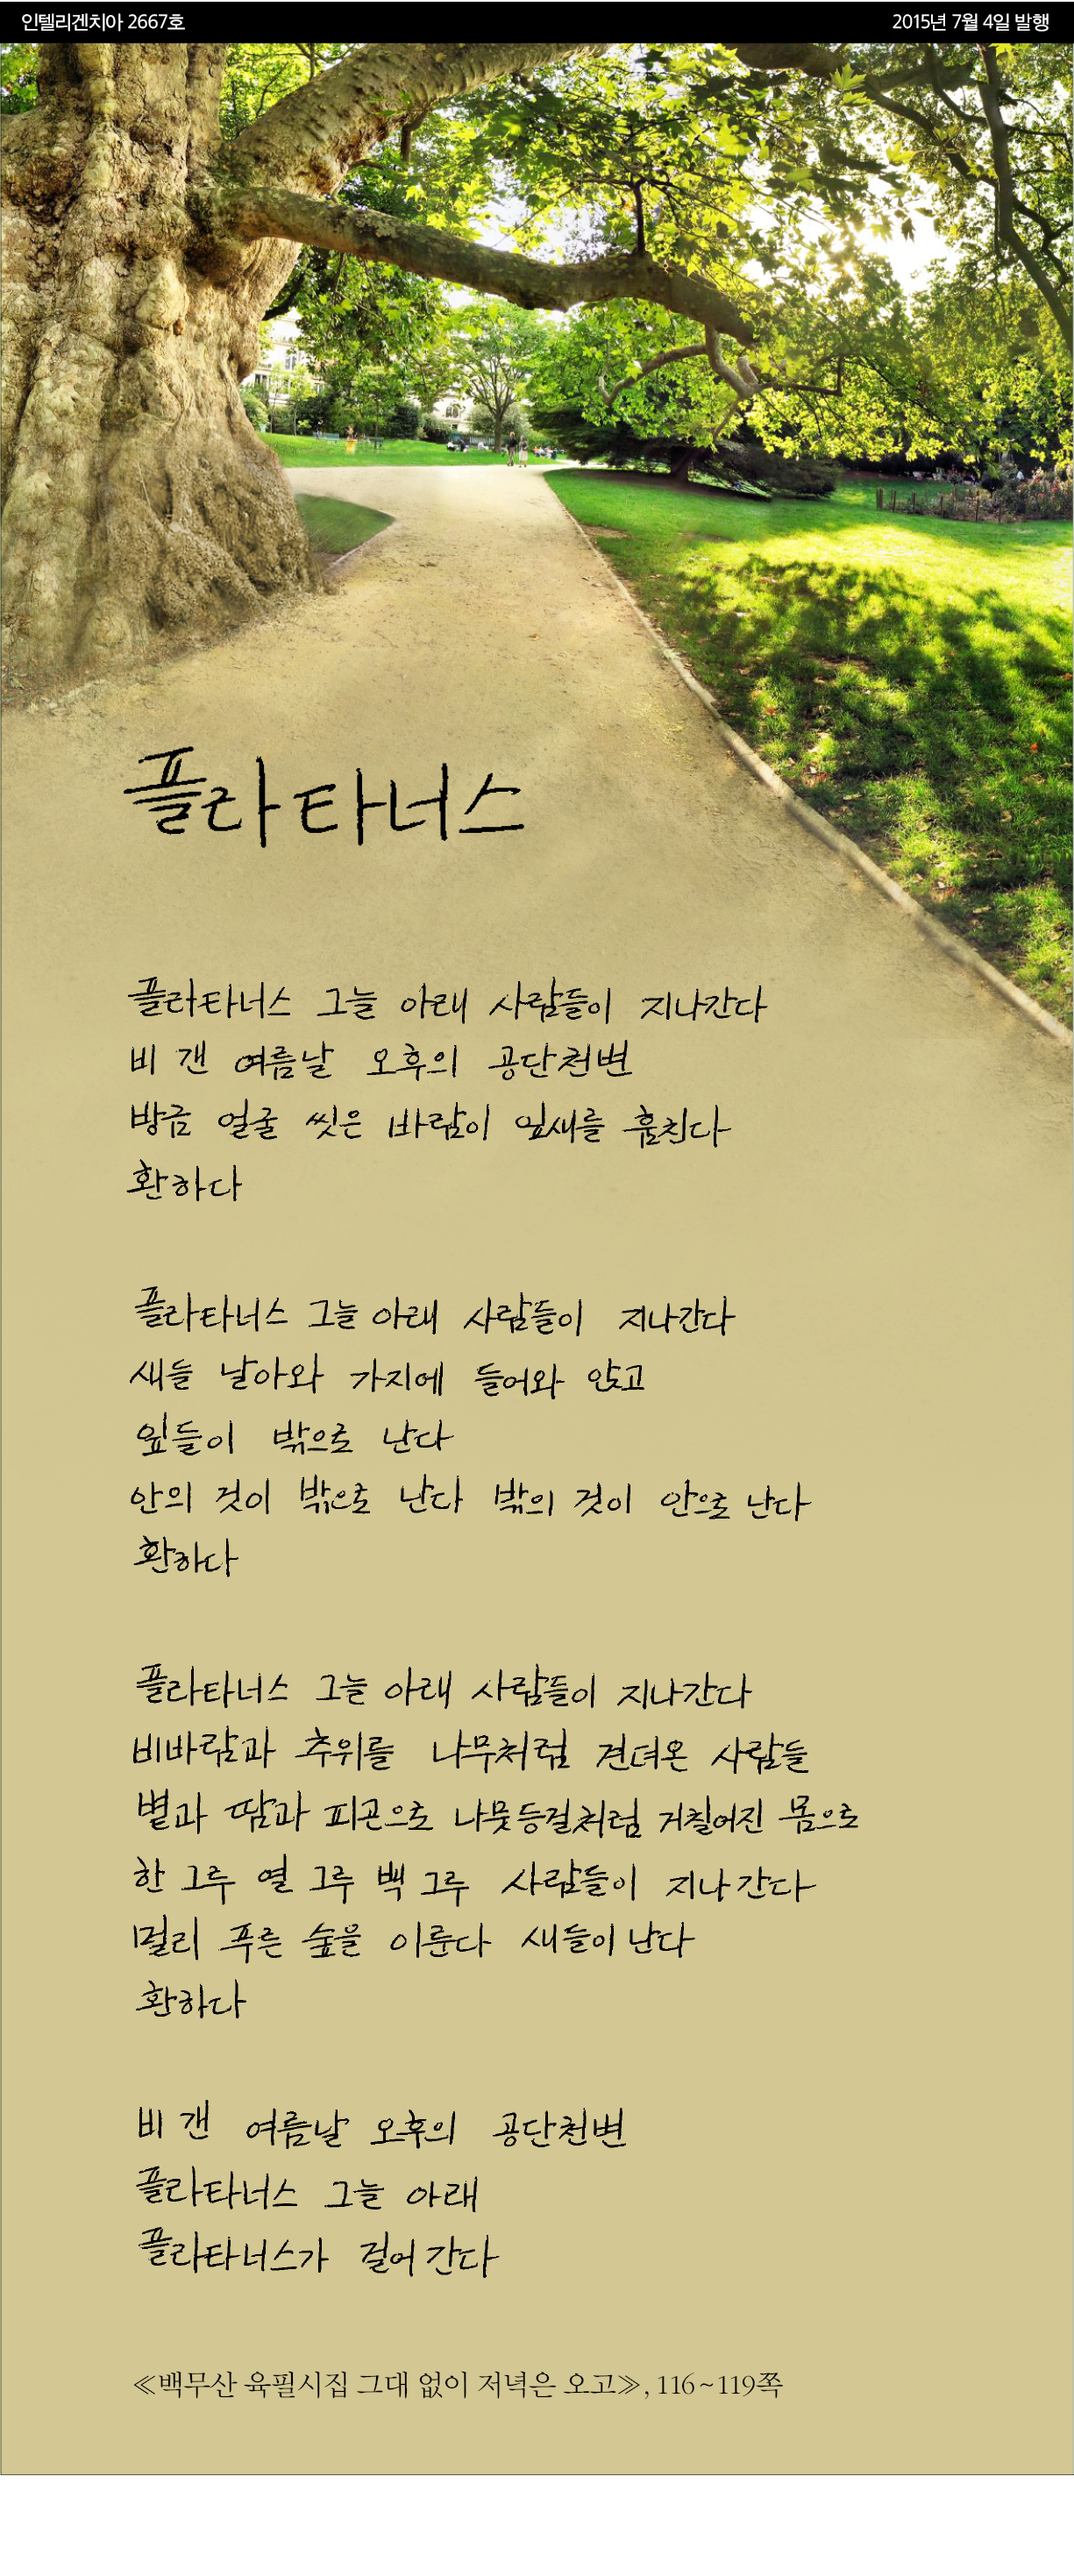 인텔리겐치아 2667호
2015년 7월 4일 발행
플라타너스
플라타너스 그늘 아래 사람들이 지나간다
비 갠 여름날 오후의 공단천변
방금 얼굴 씻은 바람이 잎새를 훔친다
환하다
플라타너스 그늘 아래 사람들이 지나간다
새들 날아와 가지에 들어와 앉고
잎들이 밖으로 난다
안의 것이 밖으로 난다 밖의 것이 안으로 난다
환하다
플라타너스 그늘 아래 사람들이 지나간다
비바람과 추위를 나무처럼 견뎌온 사람들
볕과 땀과 피곤으로 나뭇등걸처럼 거칠어진 몸으로
한 그루 열 그루 백 그루 사람들이 지나간다
멀리 푸른 숲을 이룬다 새들이 난다
환하다
비 갠 여름날 오후의 공단천변
플라타너스 그늘 아래
플라타너스가 걸어간다
≪백무산 육필시집 그대 없이 저녁은 오고≫, 116~119쪽